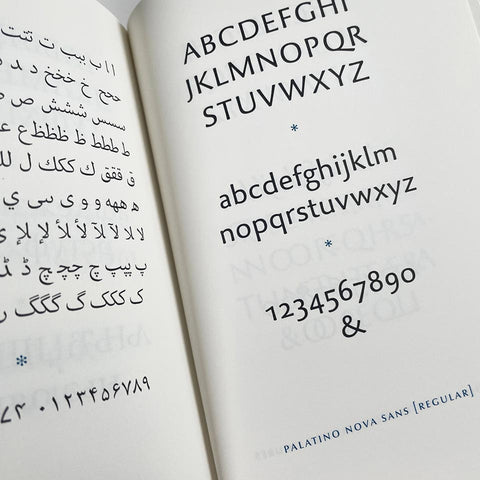 ا ا ب ببب ت تتت
ححح خ خخخ د د
سسس ششش ص
ط ططط ظ ظظظ ع
ق ققق ك ككك ل
ه ههه و و ى سى ي
لا لا لآ لآ لأ لأ لإ لإ ى
پ پپپ چ چچچ ڈ ڈ
ک ککک گ گگگ
*
۰۱۲۳۴۵۶۷۸۹
ABCDEFGHI
JKLMNOPQR
STUVWXYZ
*
abcdefghijklm
nopqrstuvwxyz
*
1234567890
&
PALATINO NOVA SANS [REGULAR]